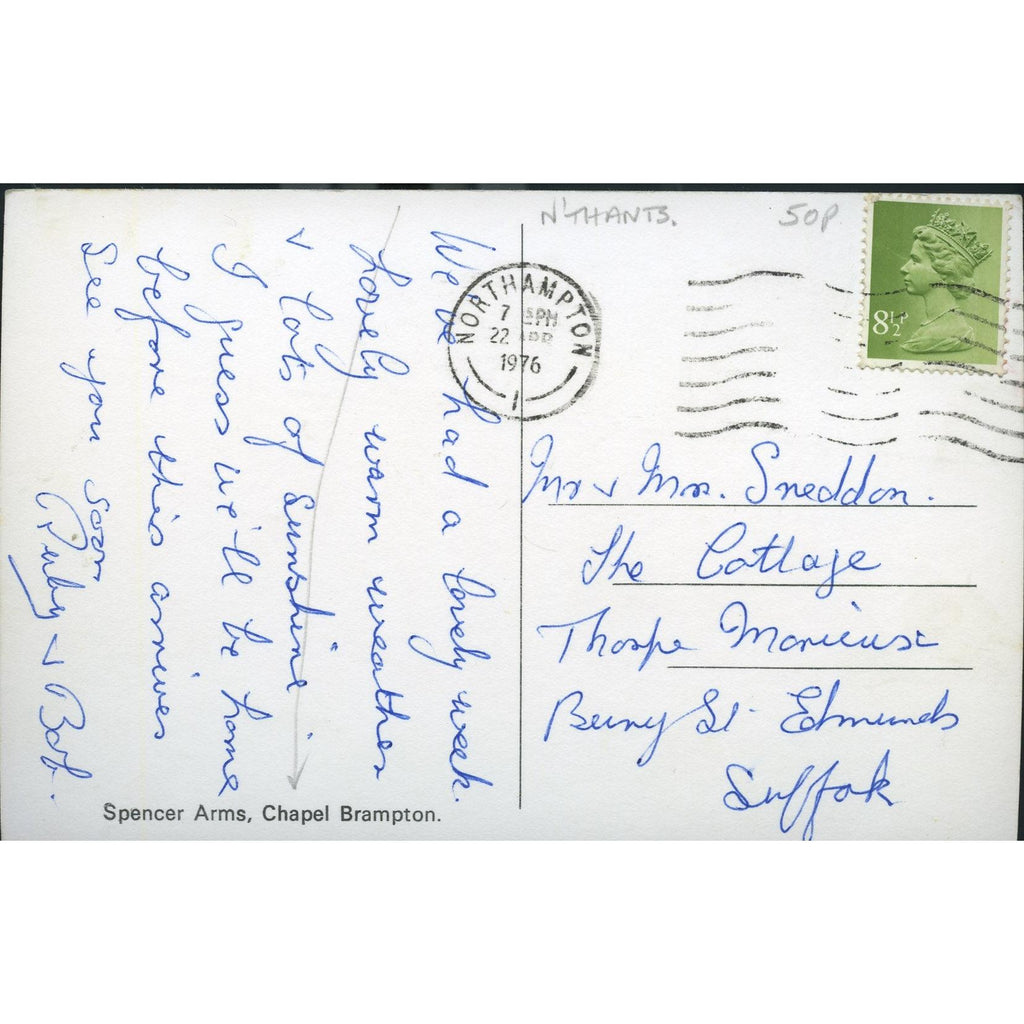 N'THANTS.
50P
8½P
NORTHAMPTON
7 PM
22 APR
1976
We've had a lovely week.
Lovely warm weather
& lots of sunshine.
I guess we'll be home
before this arrives
See you soon
Ruby & Bob.
Mr & Mrs. Sneddon.
The Cottage
Thorpe Morieux
Bury St. Edmunds
Suffolk
Spencer Arms, Chapel Brampton.